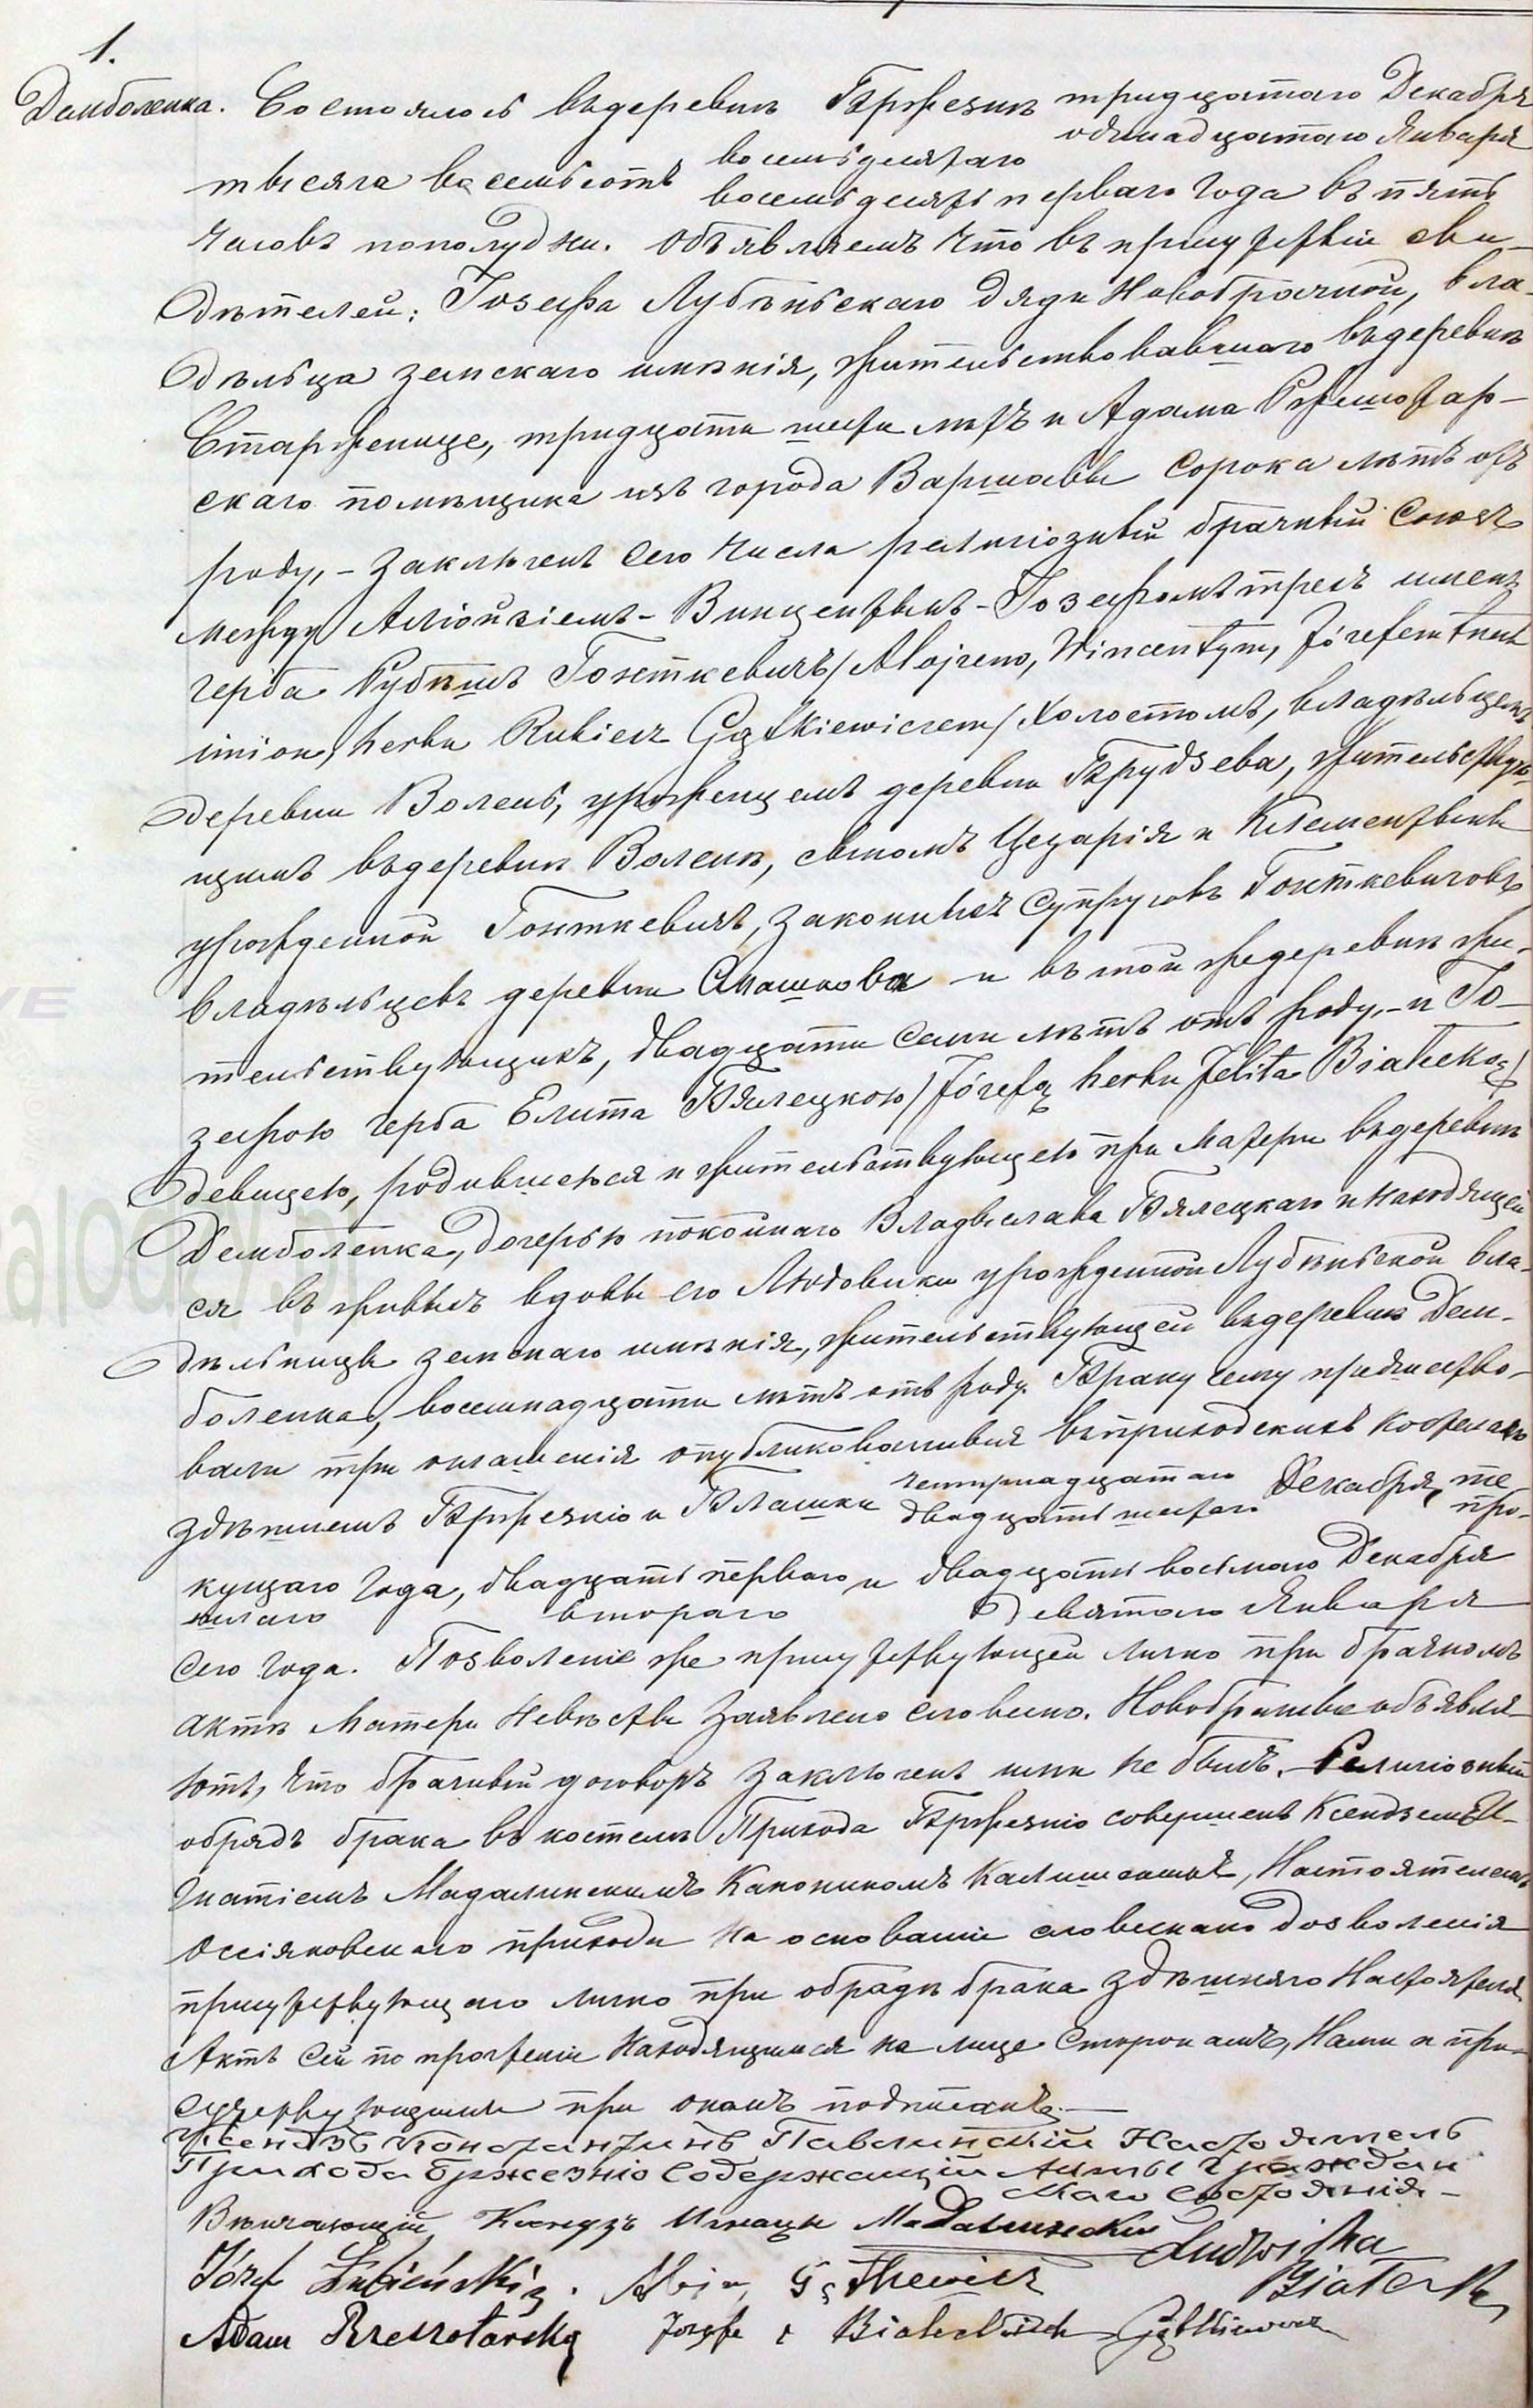 1.
Демболенка. Состоялось въ деревнѣ Бржезнѣ тридцатаго Декабря
одинадцатаго Января
тысяча восемьсотъ восемьдесятаго
восемьдесять перваго года въ пять
часовъ пополудни. Объявляемъ что въ присутствіи сви-
дѣтелей: Іозефа Лубѣньскаго дяди Новобрачной, вла-
дѣльца земскаго имѣнія, жительствовавшаго въ деревнѣ
Старженице, тридцати шести лѣтъ и Адама Ржешотар-
скаго помѣщика изъ города Варшавы сорока лѣтъ отъ
роду, - заключенъ сего числа религіозный брачный союзъ
между Алюйзіемъ - Винцентымъ - Іозефомъ трехъ именъ
герба Рубѣшъ Гонткевичъ / Alojzem, Wincentym, Józefem trzech
imion, herbu Rubiesz Gątkiewiczem / холостымъ, владѣльцемъ
деревни Волень, урожденцемъ деревни Брудзева, жительствую-
щимъ въ деревнѣ Волень, сыномъ Цезарія и Клементыны
урожденной Гонткевичъ, законныхъ супруговъ Гонткевичовъ
владѣльцевъ деревни Смашкова и въ той же деревнѣ жи-
тельствующихъ, двадцати семи лѣтъ отъ роду, - и Іо-
зефою герба Елита Бялецкою / Józefą herbu Jelita Białecką /
девицею, родившеюся и жительствующею при матери въ деревнѣ
Демболенка, дочерью покойнаго Владыслава Бялецкаго и находящей
ся въ живыхъ вдовы его Людовики урожденной Лубѣньской вла-
дѣльницы земскаго имѣнія, жительствующей въ деревнѣ Дем-
боленка, восемнадцати лѣтъ отъ роду. Браку сему предшество-
вали три оглашенія опубликованныя въ приходскихъ костелахъ
здѣшнемъ Бржезніо и Блашки четырнадцатаго Декабря, те
двадцать шестаго про-
кущаго года, двадцать перваго и двадцать восьмаго Декабря
шлаго втораго девятаго Января
сего года. Позволеніе же присутствующей лично при брачномъ
актѣ матери невѣсты заявлено словесно. Новобрачные объявля-
ютъ, что брачный договоръ заключенъ ими не былъ. Религіозный
обрядъ брака въ костелѣ Прихода Бржезніо совершенъ Ксендземъ И-
гнатіемъ Мадалинскимъ Каноникомъ Калишскимъ, Настоятелемъ
Оссіяковскаго прихода на основаніи словеснаго дозволенія
присутствующаго лично при обрядѣ брака здѣшняго Настоятеля.
Актъ сей по прочтеніи находящимся на лице сторонамъ, Нами и при-
сутствующими при ономъ подписанъ. —
Ксендзъ Константинъ Павлинскій Настоятель
Прихода Бржезніо Содержащій Акты Граждан
скаго Состоянія —
Вѣнчающій, Ксендзъ Игнацы Мадалинскій
Ludwika
Józef Łubieński. Gątkiewicz Białecka
Adam Rzeszotarski Józefa z Białeckich Gątkiewicz